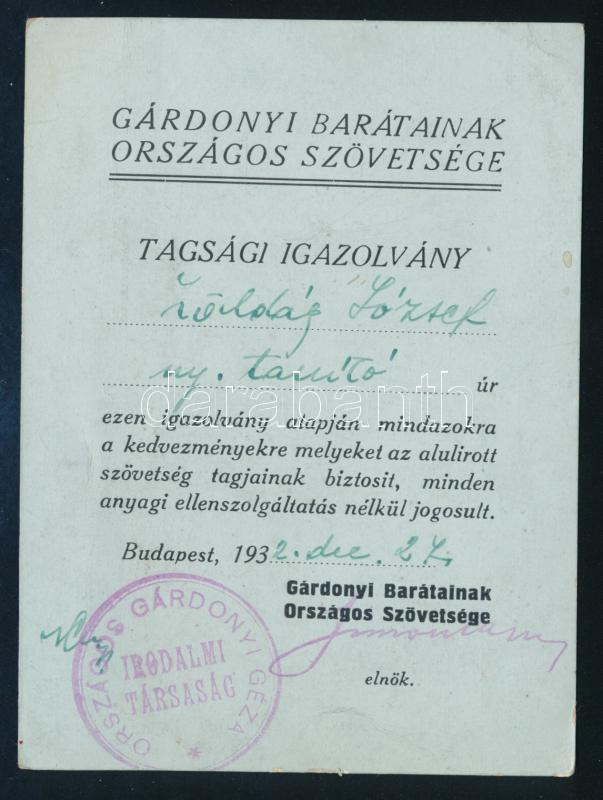 GÁRDONYI BARÁTAINAK
ORSZÁGOS SZÖVETSÉGE
TAGSÁGI IGAZOLVÁNY
Zöldág József
ny. tanító úr
darabanth
ezen igazolvány alapján mindazokra
a kedvezményekre melyeket az alulirott
szövetség tagjainak biztosit, minden
anyagi ellenszolgáltatás nélkül jogosult.
Budapest, 1932. dec. 27.
Gárdonyi Barátainak
Országos Szövetsége
elnök.
ORSZÁGOS GÁRDONYI GÉZA
IRODALMI
TÁRSASÁG